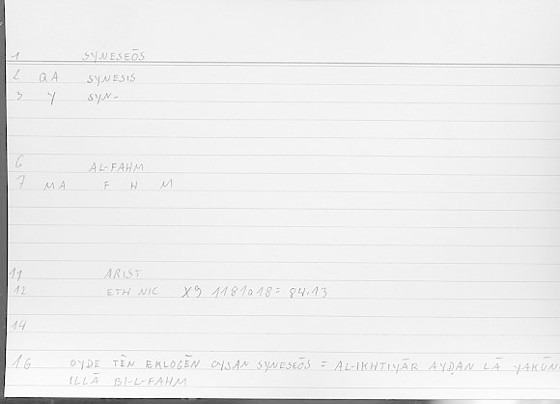 1 SYNESEŌS
2 QA SYNESIS
3 Y SYN-
6 AL-FAHM
7 MA F H M
11 ARIST
12 ETH NIC X9 1181a18 = 84.13
14
16 OYDE TĒN EKLOGĒN OYSAN SYNESEŌS = AL-IKHTIYĀR AYḌAN LĀ YAKŪN
ILLĀ BI-L-FAHM